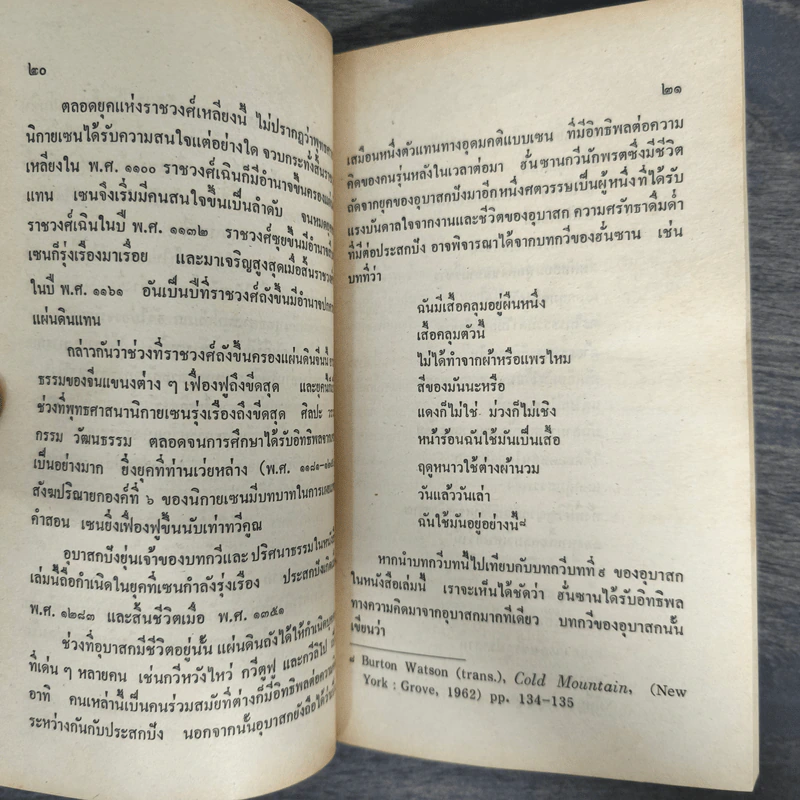 ๒๐
ตลอดยุคแห่งราชวงศ์เหลียงนี้ ไม่ปรากฏว่าพุทธศาส
นิกายเซนได้รับความสนใจแต่อย่างใด จวบกระทั่งสิ้นรา
เหลียงใน พ.ศ. ๑๑๐๐ ราชวงศ์เฉินก็มีอำนาจขึ้นครอง
แทน เซนจึงเริ่มมีคนสนใจขึ้นเป็นลำดับ จนหมด
ราชวงศ์เฉินในปี พ.ศ. ๑๑๓๒ ราชวงศ์ซุยขึ้นมีอำนาจ
เซนก็รุ่งเรืองมาเรื่อย และมาเจริญสูงสุดเมื่อสิ้นราชวงศ์
ในปี พ.ศ. ๑๑๖๑ อันเป็นปีที่ราชวงศ์ถังขึ้นมีอำนาจปก
แผ่นดินแทน
กล่าวกันว่าช่วงที่ราชวงศ์ถังขึ้นครองแผ่นดินจีนนี้
ธรรมของจีนแขนงต่าง ๆ เฟื่องฟูถึงขีดสุด และยุคนี้
ช่วงที่พุทธศาสนานิกายเซนรุ่งเรืองถึงขีดสุด ศิลปะ
กรรม วัฒนธรรม ตลอดจนการศึกษาได้รับอิทธิพล
เป็นอย่างมาก ยิ่งยุคที่ท่านเว่ยหล่าง (พ.ศ. ๑๑๘๑-
สังฆปริณายกองค์ที่ ๖ ของนิกายเซนมีบทบาทในการเผย
คำสอน เซนยิ่งเฟื่องฟูขึ้นนับเท่าทวีคูณ
อุบาสกปังยุ่นเจ้าของบทกวีและปริศนาธรรมในหนังสือ
เล่มนี้ถือกำเนิดในยุคที่เซนกำลังรุ่งเรือง ประสกปังเกิด
พ.ศ. ๑๒๘๓ และสิ้นชีวิตเมื่อ พ.ศ. ๑๓๕๑
ช่วงที่อุบาสกมีชีวิตอยู่นั้น แผ่นดินถังได้ให้กำเนิด
ที่เด่น ๆ หลายคน เช่นกวีหวังไหว่ กวีตูฟู และกวีลิโป
อาทิ คนเหล่านี้เป็นคนร่วมสมัยที่ต่างก็มีอิทธิพลต่อความ
ระหว่างกันกับประสกปัง นอกจากนั้นอุบาสกยังถือได้ว่า
๒๑
เสมือนหนึ่งตัวแทนทางอุดมคติแบบเซน ที่มีอิทธิพลต่อความ
คิดของคนรุ่นหลังในเวลาต่อมา ฮั่นซานกวีนักพรตซึ่งมีชีวิต
ถัดจากยุคของอุบาสกปังมาอีกหนึ่งศตวรรษเป็นผู้หนึ่งที่ได้รับ
แรงบันดาลใจจากงานและชีวิตของอุบาสก ความศรัทธาดื่มด่ำ
ที่มีต่อประสกปัง อาจพิจารณาได้จากบทกวีของฮั่นซาน เช่น
บทที่ว่า
ฉันมีเสื้อคลุมอยู่ผืนหนึ่ง
เสื้อคลุมตัวนี้
ไม่ได้ทำจากผ้าหรือแพรไหม
สีของมันนะหรือ
แดงก็ไม่ใช่ ม่วงก็ไม่เชิง
หน้าร้อนฉันใช้มันเป็นเสื้อ
ฤดูหนาวใช้ต่างผ้านวม
วันแล้ววันเล่า
ฉันใช้มันอยู่อย่างนี้๘
หากนำบทกวีบทนี้ไปเทียบกับบทกวีบทที่ ๙ ของอุบาสก
ในหนังสือเล่มนี้ เราจะเห็นได้ชัดว่า ฮั่นซานได้รับอิทธิพล
ทางความคิดมาจากอุบาสกมากทีเดียว บทกวีของอุบาสกนั้น
เขียนว่า
๘ Burton Watson (trans.), Cold Mountain, (New
York : Grove, 1962) pp. 134-135